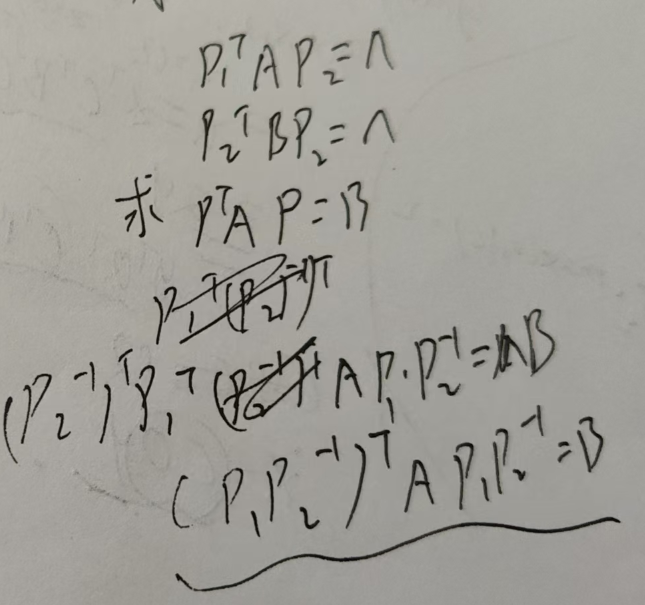 P₁ᵀAP₂=Λ
P₂ᵀBP₂=Λ
求 PᵀAP=B
(P₂⁻¹)ᵀP₁ᵀ AP₁·P₂⁻¹=B
(P₁P₂⁻¹)ᵀAP₁P₂⁻¹=B